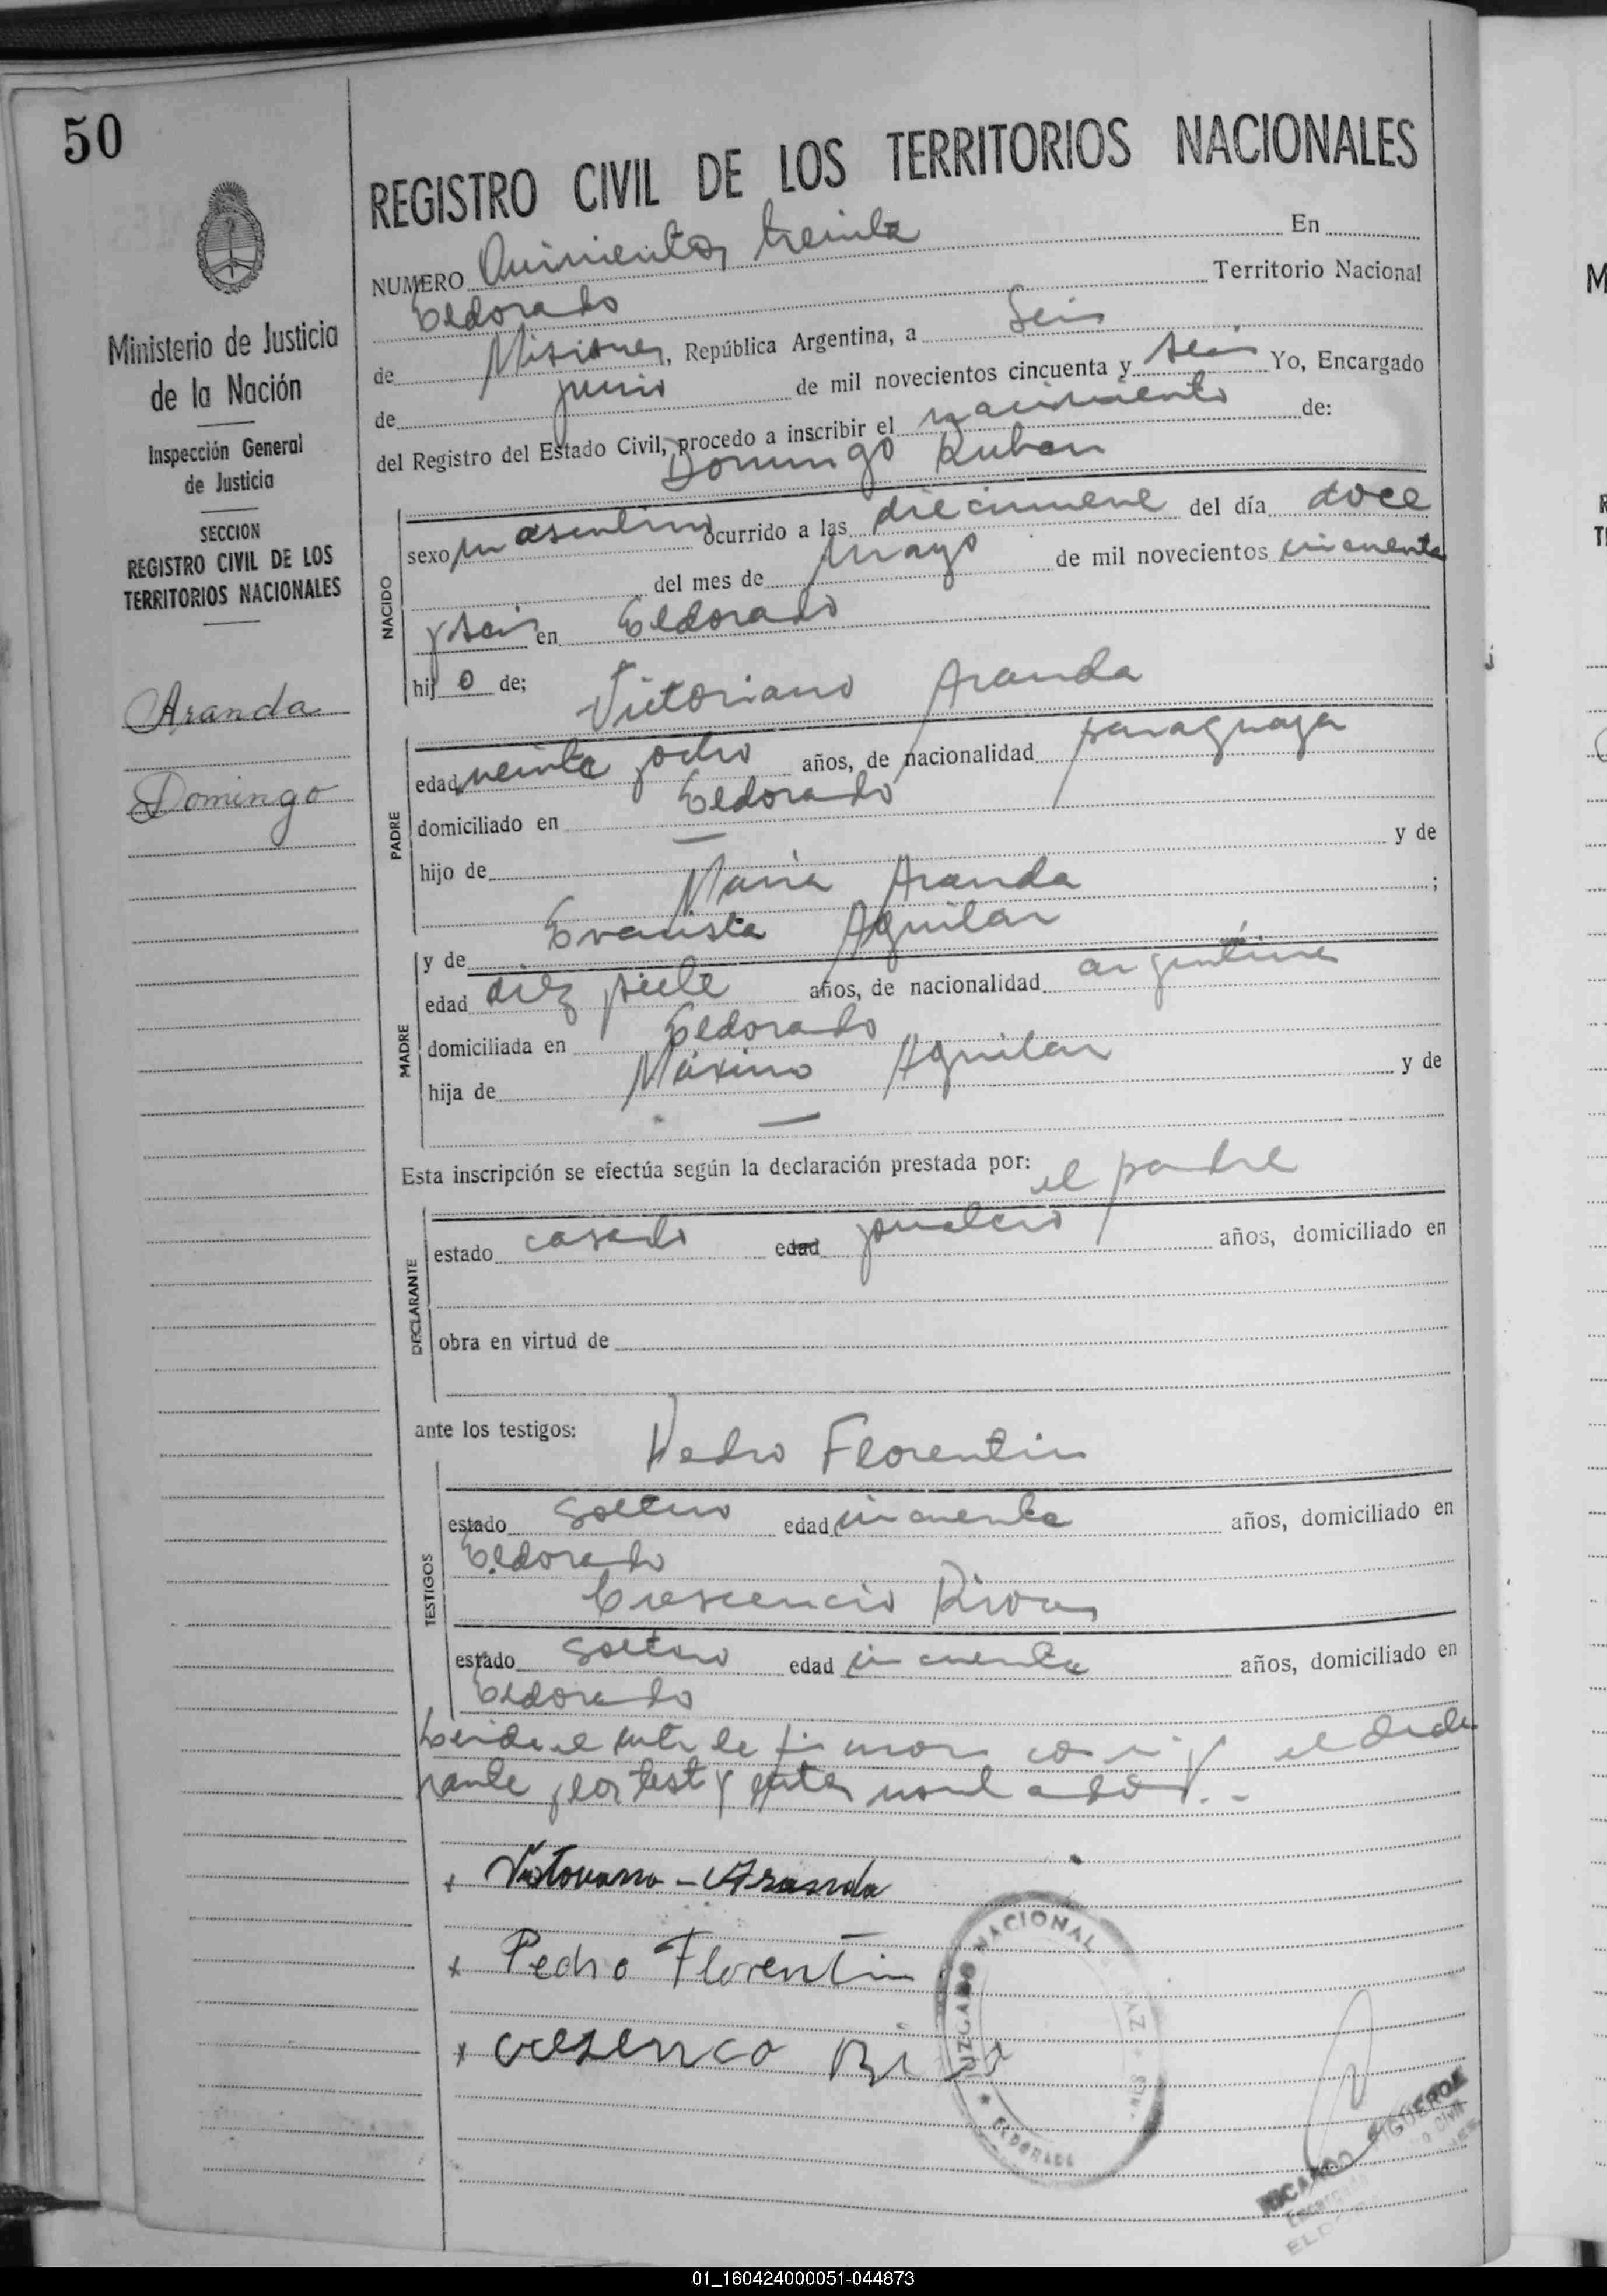 50
REGISTRO CIVIL DE LOS TERRITORIOS NACIONALES
Ministerio de Justicia
de la Nación
Inspección General
de Justicia
SECCION
REGISTRO CIVIL DE LOS
TERRITORIOS NACIONALES
Aranda
Domingo
NUMERO Quinientos treinta En
Eldorado Territorio Nacional
de Misiones, República Argentina, a Seis
de junio de mil novecientos cincuenta y seis Yo, Encargado
del Registro del Estado Civil, procedo a inscribir el nacimiento de:
Domingo Ruben
NACIDO
sexo masculino ocurrido a las diecinueve del día doce
del mes de mayo de mil novecientos cincuenta
y seis en Eldorado
hij o de; Victoriano Aranda
PADRE
edad veinte y ocho años, de nacionalidad paraguaya
domiciliado en Eldorado
hijo de — y de
Maria Aranda ;
y de Evarista Aguilar
MADRE
edad diez y siete años, de nacionalidad argentina
domiciliada en Eldorado
hija de Máximo Aguilar y de
—
Esta inscripción se efectúa según la declaración prestada por: el padre
DECLARANTE
estado casado edad años, domiciliado en
obra en virtud de
ante los testigos: Pedro Florentin
TESTIGOS
estado soltero edad cincuenta años, domiciliado en
Eldorado
Crescencio Rivas
estado soltero edad cincuenta años, domiciliado en
Eldorado
Leida el acta la firmaron el decla
rante y los test
x Victoriano - Aranda
x Pedro Florentin
x
JUZGADO NACIONAL DE PAZ
ELDORADO
RICARDO FIGUEROA
01_160424000051-044873